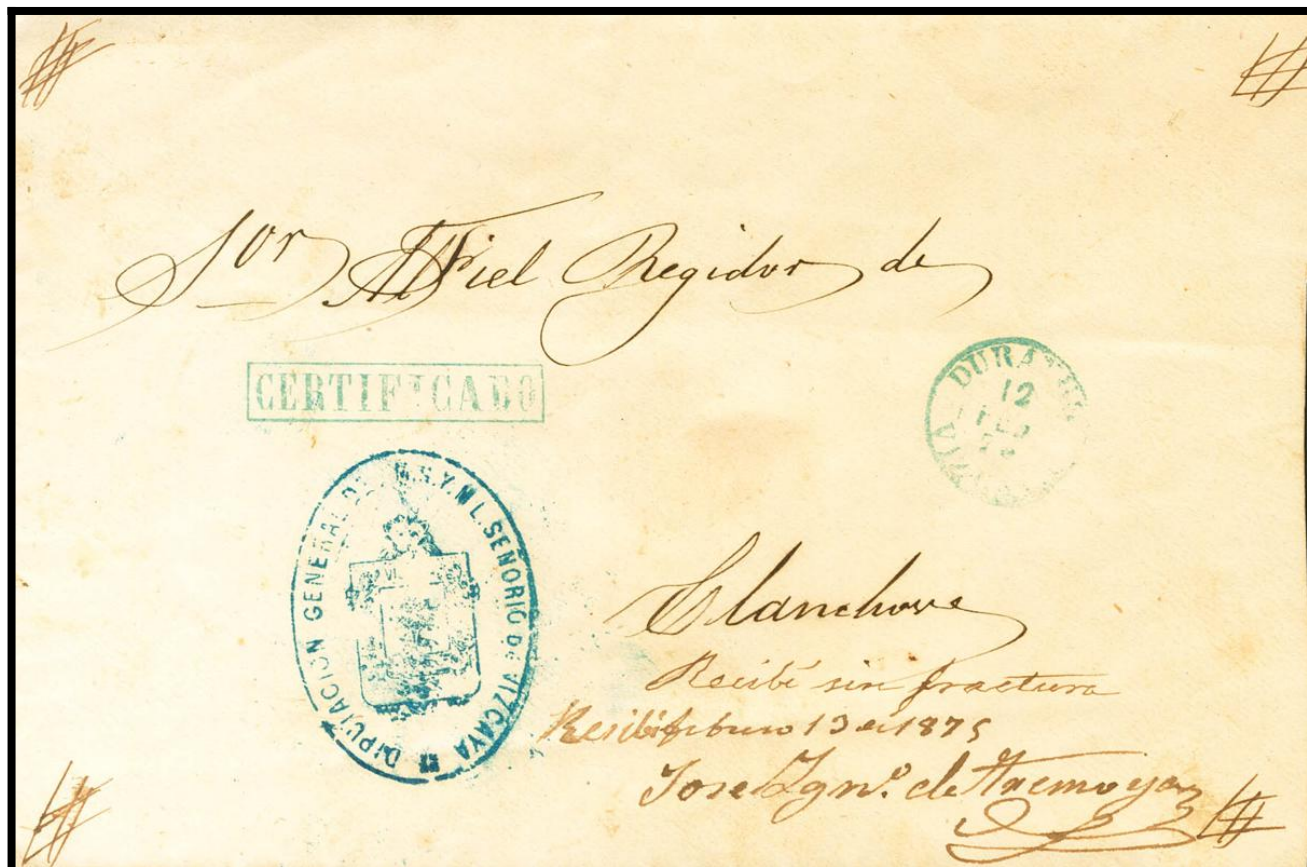 Sor Fiel Regidor de
CERTIFICADO
DURANGO
12
FEB
VIZCAYA
DIPUTACIÓN GENERAL DEL M.N.Y.M.L. SEÑORIO DE VIZCAYA
Elanchove
Recibí sin fractura
Recibí febrero 13 de 1875
Jose Ygn.º de